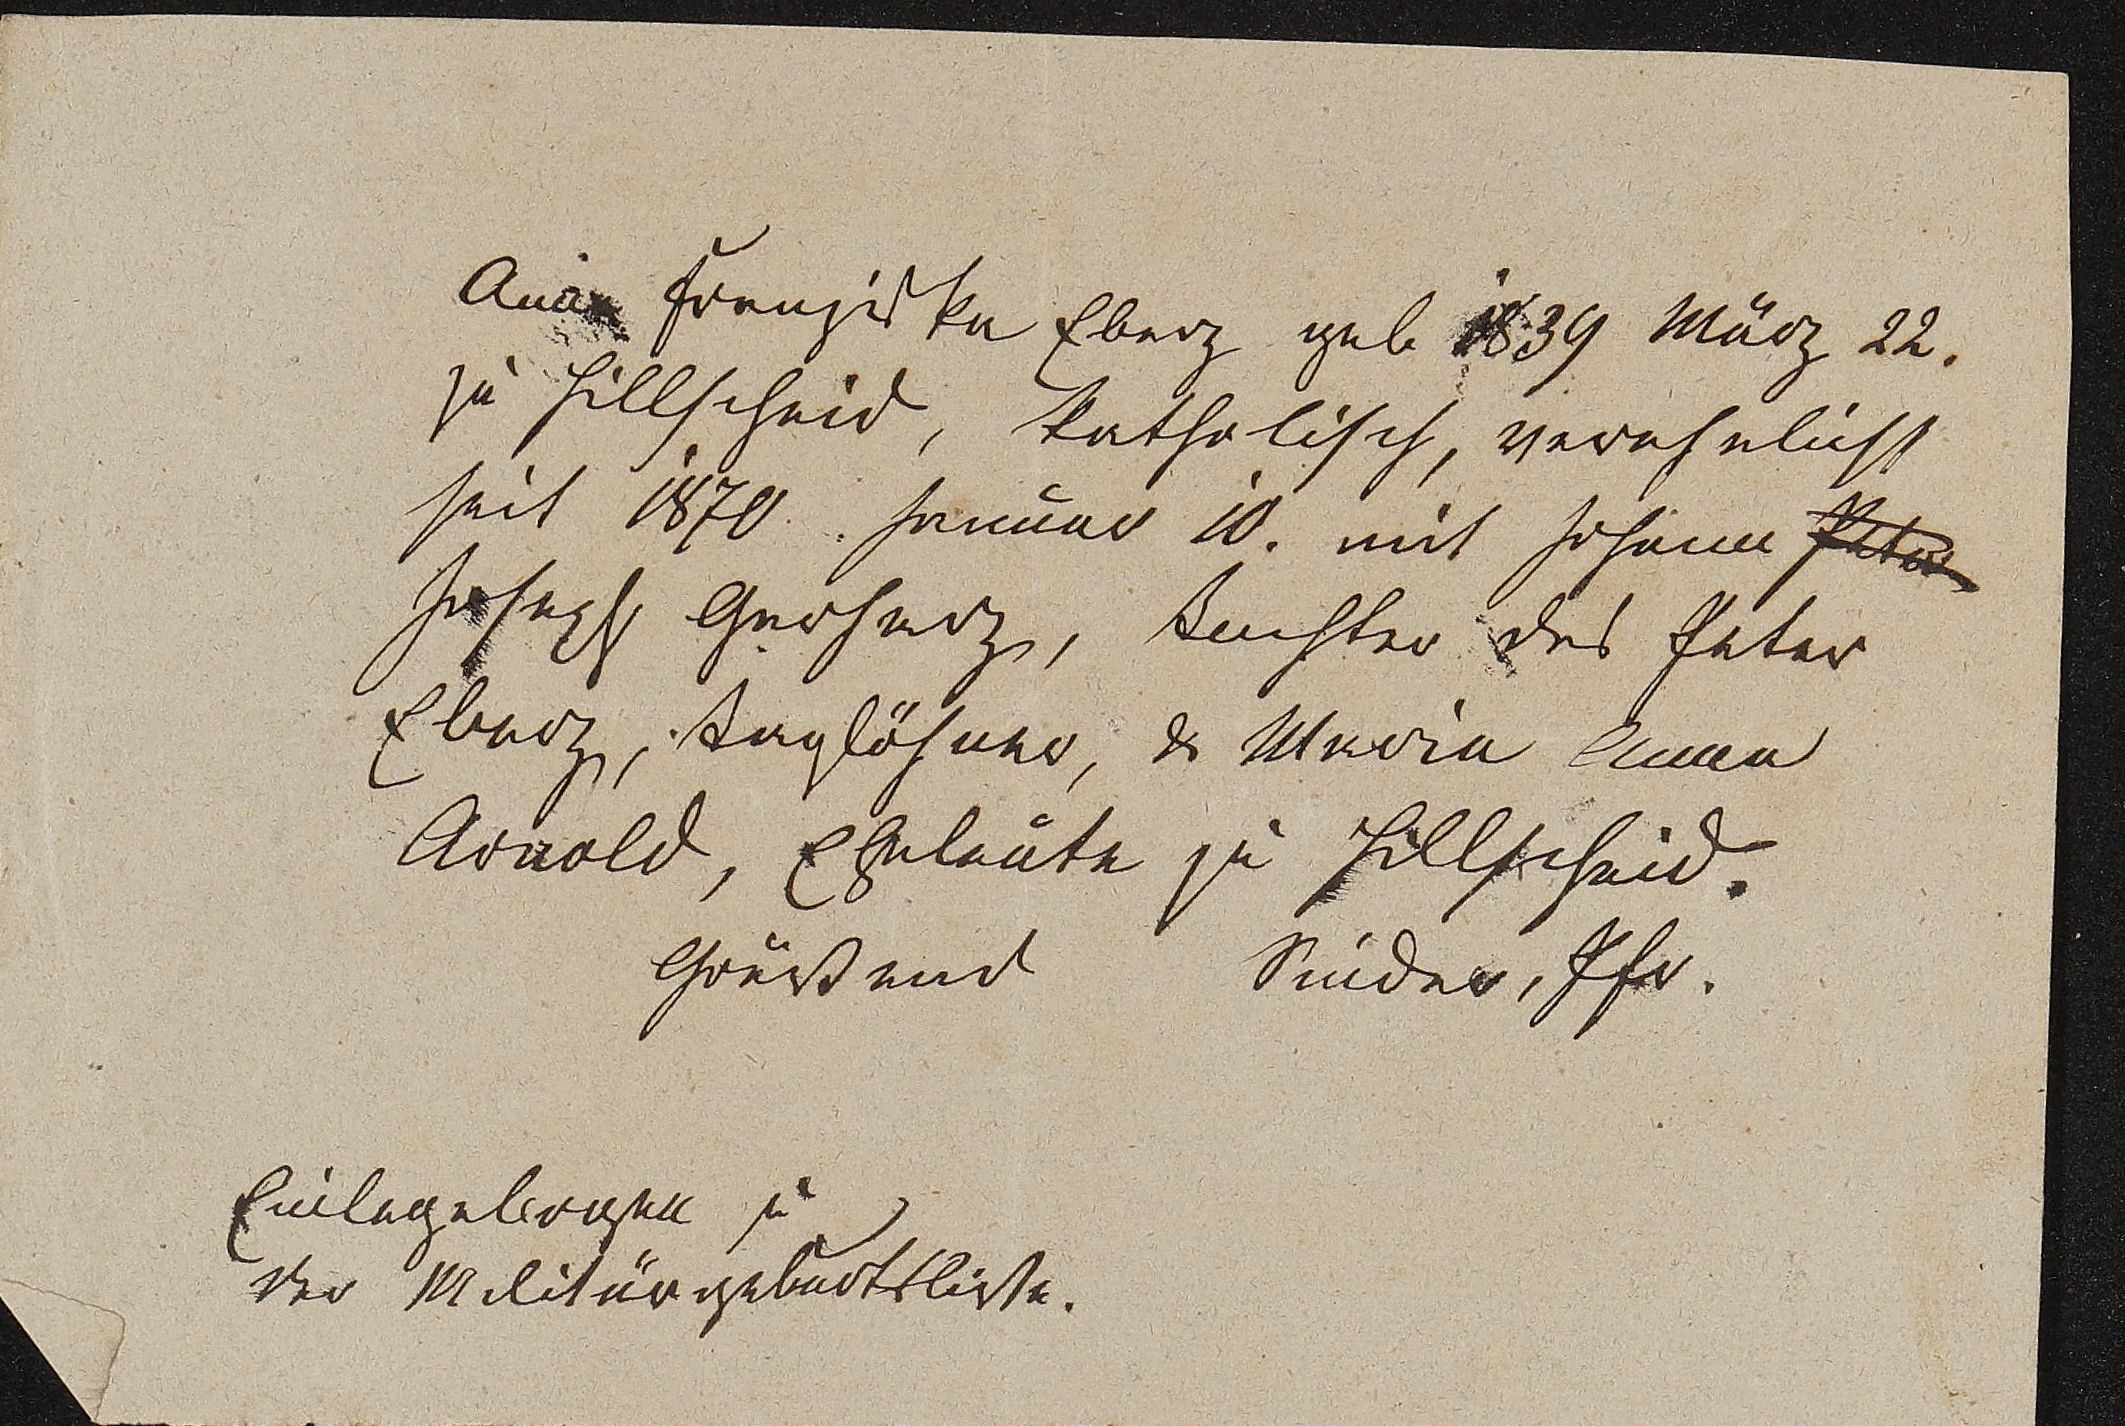 Anna Franziska Eberz geb 1839 März 22.
zu Hillscheid, katholisch, verehelicht
seit 1870 Januar 10. mit Johann Peter
Joseph Gerharz, Tochter des Peter
Eberz, Taglöhner, & Maria Anna
Arnold, Eheleute zu Hillscheid.
Grüßend Pfr.
Einlagebogen zu
der Militärgeburtsliste.